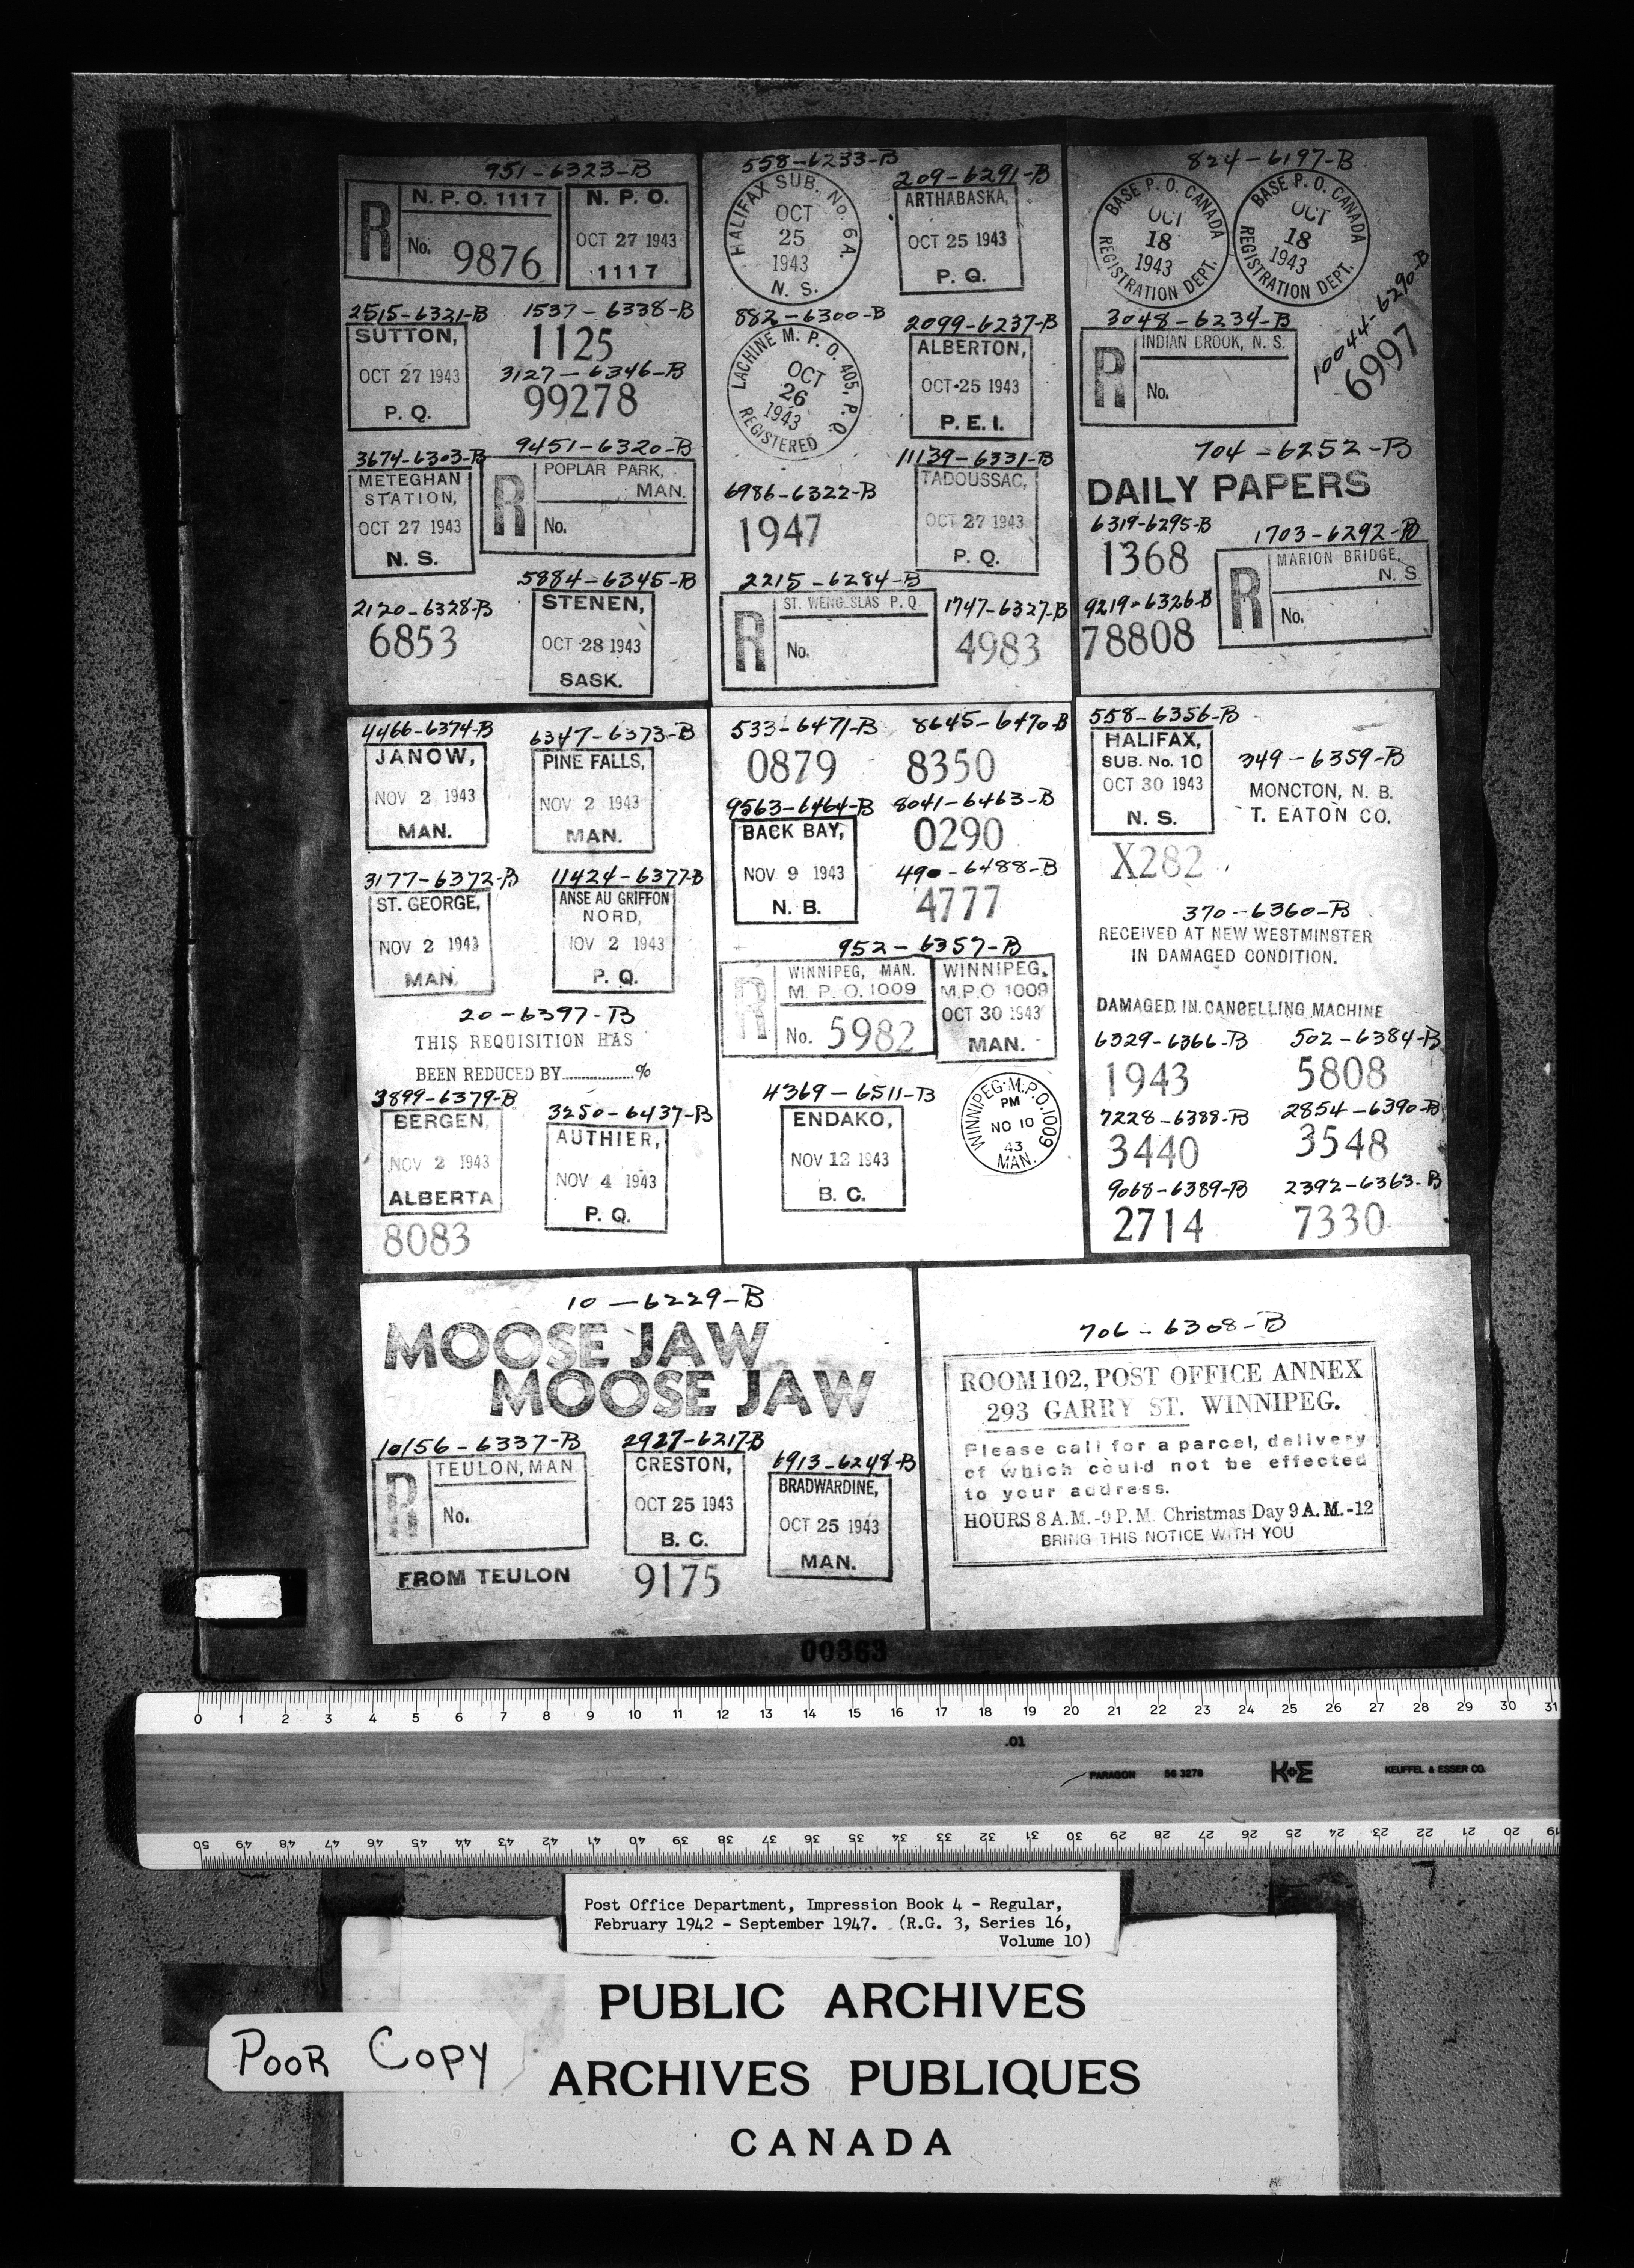 951-6323-B
R N. P. O. 1117
No. 9876
N. P. O.
OCT 27 1943
1117
2515-6321-B
SUTTON,
OCT 27 1943
P. Q.
1537-6338-B
1125
3127-6346-B
99278
3674-6303-B
METEGHAN
STATION,
OCT 27 1943
N. S.
9451-6320-B
R POPLAR PARK,
MAN.
No.
2120-6328-B
6853
5884-6345-B
STENEN,
OCT 28 1943
SASK.
558-6233-B
HALIFAX SUB. No. 6A.
OCT
25
1943
N. S.
209-6291-B
ARTHABASKA,
OCT 25 1943
P. Q.
882-6300-B
LACHINE M. P. O. 405, P. Q.
OCT
26
1943
REGISTERED
2099-6237-B
ALBERTON,
OCT 25 1943
P. E. I.
6986-6322-B
1947
11139-6331-B
TADOUSSAC,
OCT 27 1943
P. Q.
2215-6284-B
R ST. WENCESLAS P. Q.
No.
1747-6327-B
4983
824-6197-B
BASE P. O. CANADA
OCT
18
1943
REGISTRATION DEPT.
BASE P. O. CANADA
OCT
18
1943
REGISTRATION DEPT.
3048-6234-B
R INDIAN BROOK, N. S.
No.
10044-6290-B
6997
704-6252-B
DAILY PAPERS
6319-6295-B
1368
1703-6292-B
R MARION BRIDGE,
N. S
No.
9219-6326-B
78808
4466-6374-B
JANOW,
NOV 2 1943
MAN.
6347-6373-B
PINE FALLS,
NOV 2 1943
MAN.
3177-6372-B
ST. GEORGE,
NOV 2 1943
MAN.
11424-6377-B
ANSE AU GRIFFON
NORD,
NOV 2 1943
P. Q.
20-6397-B
THIS REQUISITION HAS
BEEN REDUCED BY..................%
3899-6379-B
BERGEN,
NOV 2 1943
ALBERTA
8083
3250-6437-B
AUTHIER,
NOV 4 1943
P. Q.
533-6471-B
0879
8645-6470-B
8350
9563-6464-B
BACK BAY,
NOV 9 1943
N. B.
8041-6463-B
0290
490-6488-B
4777
952-6357-B
R WINNIPEG, MAN.
M. P. O. 1009
No. 5982
WINNIPEG,
M.P.O 1009
OCT 30 1943
MAN.
4369-6511-B
ENDAKO,
NOV 12 1943
B. C.
WINNIPEG·M.P.O.1009
PM
NO 10
43
MAN.
558-6356-B
HALIFAX,
SUB. No. 10
OCT 30 1943
N. S.
X282
349-6359-B
MONCTON, N. B.
T. EATON CO.
370-6360-B
RECEIVED AT NEW WESTMINSTER
IN DAMAGED CONDITION.
DAMAGED IN CANCELLING MACHINE
6329-6366-B
1943
502-6384-B
5808
7228-6388-B
3440
2854-6390-B
3548
9068-6389-B
2714
2392-6363-B
7330
10-6229-B
MOOSE JAW
MOOSE JAW
10156-6337-B
R TEULON, MAN
No.
FROM TEULON
2927-6217-B
CRESTON,
OCT 25 1943
B. C.
9175
6913-6248-B
BRADWARDINE,
OCT 25 1943
MAN.
706-6308-B
ROOM 102, POST OFFICE ANNEX
293 GARRY ST. WINNIPEG.
Please call for a parcel, delivery
of which could not be effected
to your address.
HOURS 8 A.M.-9 P.M. Christmas Day 9 A.M.-12
BRING THIS NOTICE WITH YOU
00363
0 1 2 3 4 5 6 7 8 9 10 11 12 13 14 15 16 17 18 19 20 21 22 23 24 25 26 27 28 29 30 31
.01
PARAGON 56 3278 K+E KEUFFEL & ESSER CO.
50 49 48 47 46 45 44 43 42 41 40 39 38 37 36 35 34 33 32 31 30 29 28 27 26 25 24 23 22 21 20 19
Post Office Department, Impression Book 4 - Regular,
February 1942 - September 1947. (R.G. 3, Series 16,
Volume 10)
PUBLIC ARCHIVES
ARCHIVES PUBLIQUES
CANADA
POOR COPY